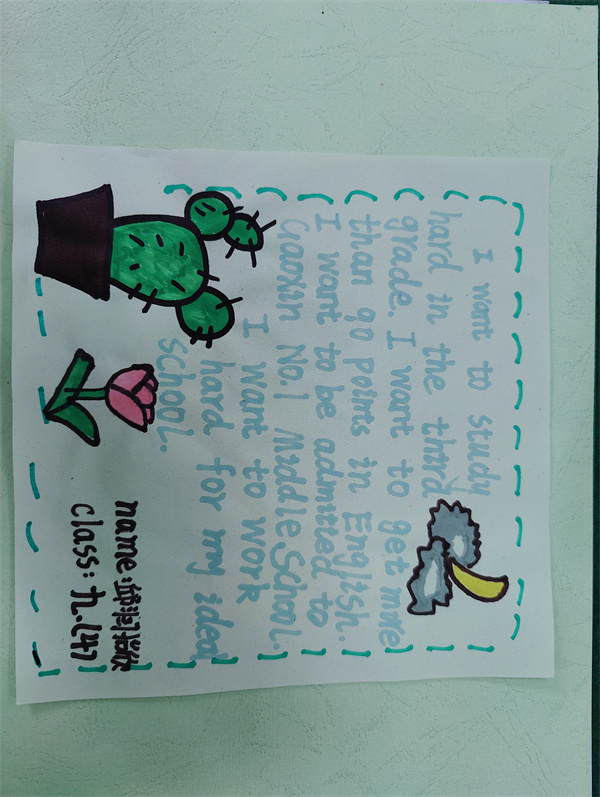 I want to study
hard in the third
grade. I want to get more
than 90 points in English.
I want to be admitted to
Gaoxin No.1 Middle School.
I want to work
hard for my ideal
school.
name:
class: 九.147